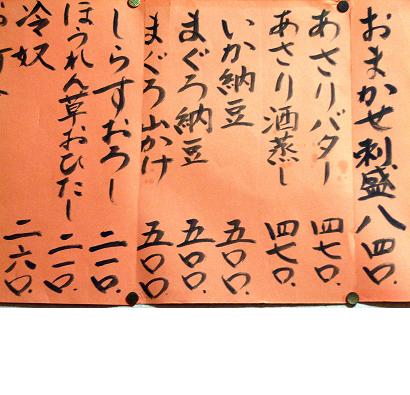 おまかせ刺盛八四〇.
あさりバター四七〇.
あさり酒蒸し四七〇.
いか納豆五〇〇.
まぐろ納豆五〇〇.
まぐろ山かけ五〇〇
しらすおろし二一〇.
ほうれん草おひたし二一〇.
冷奴二六〇.